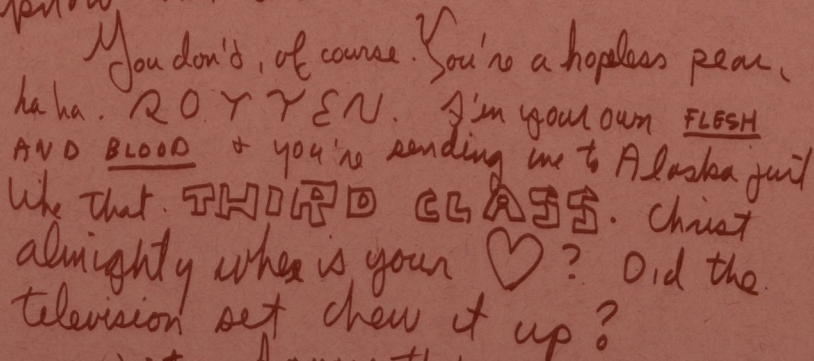 You don't, of course. You're a hopeless pear,
ha ha. ROTTEN. I'm your own FLESH
AND BLOOD + you're sending me to Alaska just
like that. THIRD CLASS. Christ
almighty where is your ♡? Did the
television set chew it up?